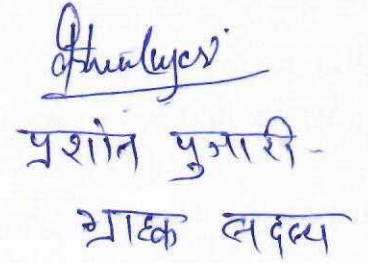 प्रशांत पुजारी-
ग्राहक सदस्य